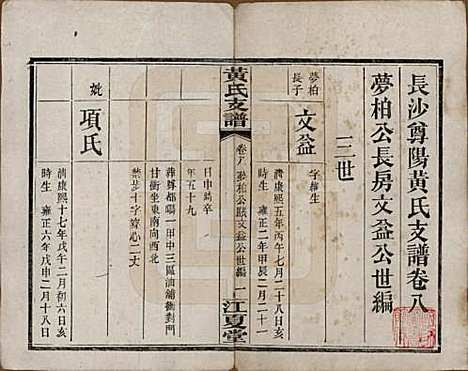 長沙尊陽黃氏支譜卷八
夢柏公長房文益公世編
三世
夢柏長子
文益
字
清康熙五年丙午七月二十八日亥時生
雍正二年甲辰二月二十一日申時卒
年五十九
葬尊都鴨一甲中三區油舖衝對門
甘衝坐東南向西北
禁步十字穿心二丈
黃氏支譜
卷八
夢柏公長房文益公世編
一
江夏堂
妣
項氏
清康熙十七年戊午二月初六日亥時生
雍正六年戊申二月十八日